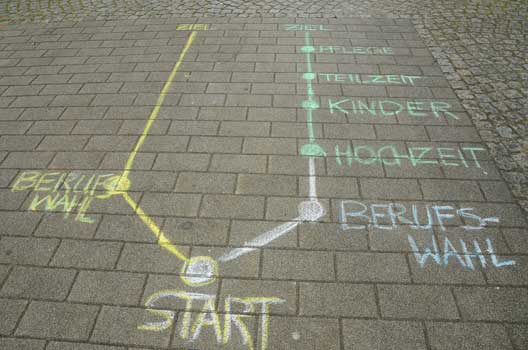 ZIEL
ZIEL
PFLEGE
TEILZEIT
KINDER
HOCHZEIT
BERUFS
WAHL
BERUFS-
WAHL
START